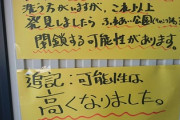 洗う方がいますが、これ以上
発見しましたら ふれあい公園
閉鎖する可能性があります。
追記:可能性は
高くなりました。